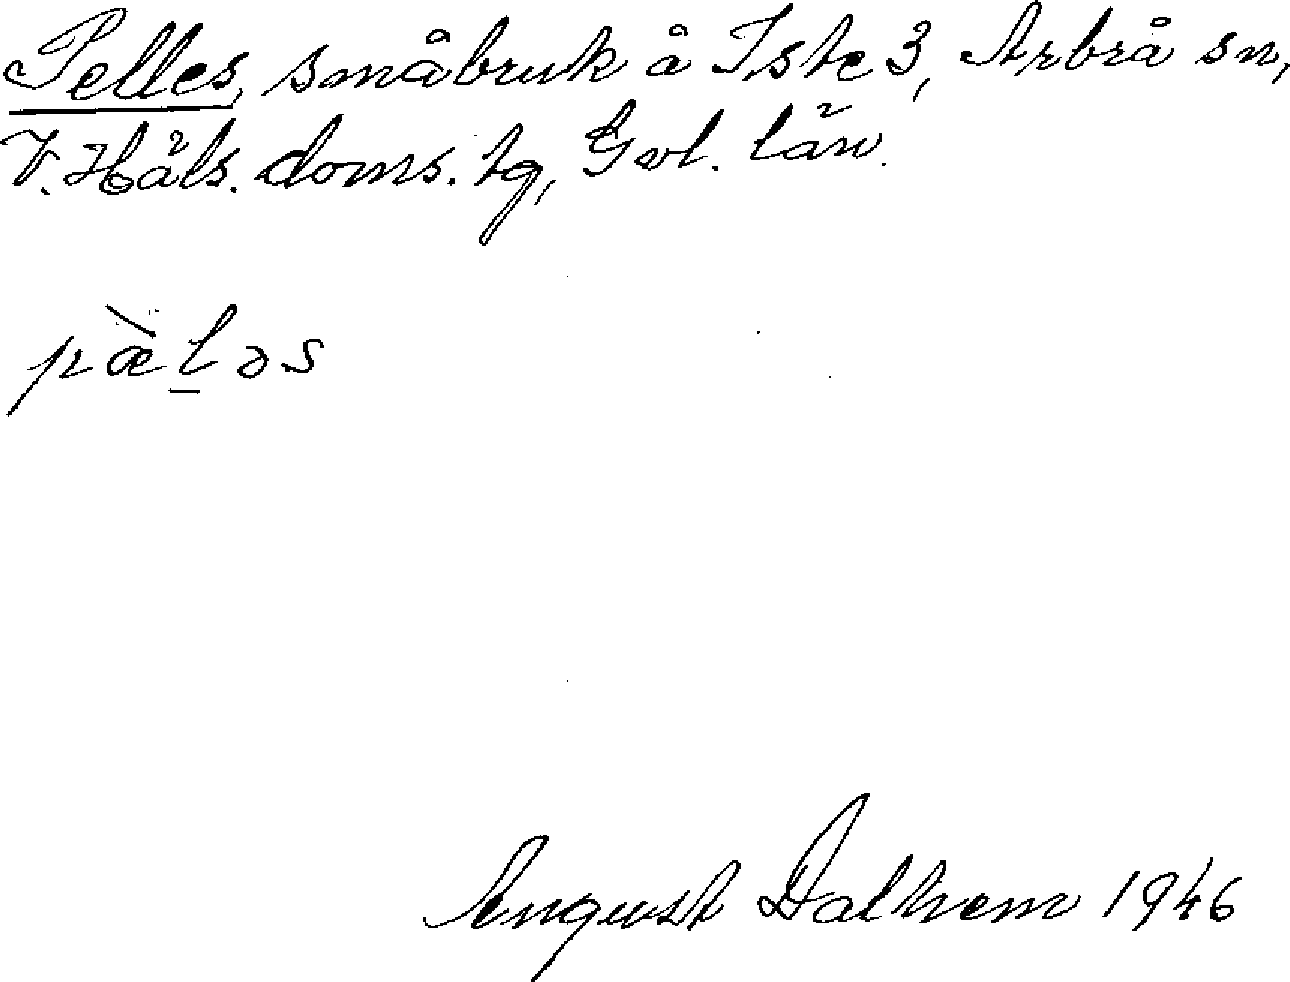 Pelles, småbruk å Iste 3, Arbrå sn,
V. Häls. doms. tg, Gvl. län.
pæ̀l̠əs
August Dalhem 1946